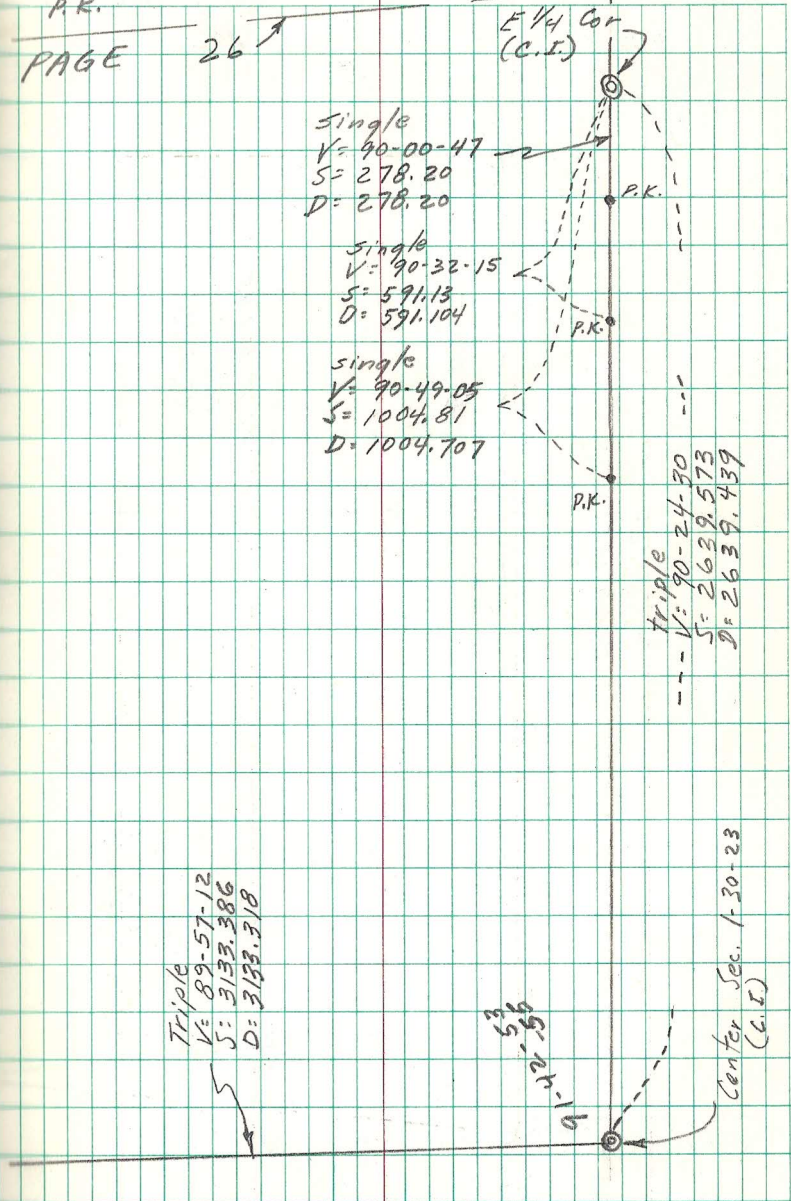 P.K.
PAGE 26
E 1/4 Cor
(C.I.)
single
V= 90-00-47
S= 278.20
D= 278.20
P.K.
single
V= 90-32-15
S= 591.13
D= 591.104
P.K.
single
V= 90-49-05
S= 1004.81
D= 1004.707
P.K.
triple
V= 90-24-30
S= 2639.573
D= 2639.439
Triple
V= 89-57-12
S= 3133.386
D= 3133.318
53
91-42-55
Center Sec. 1-30-23
(C.I.)